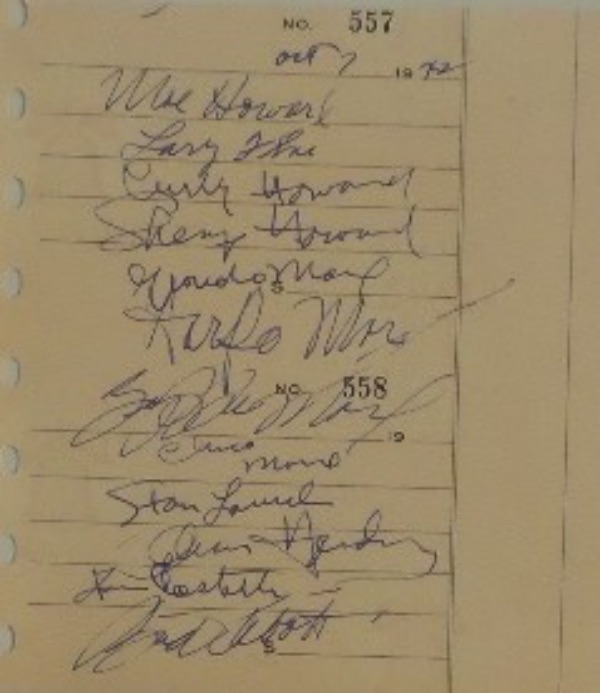 NO. 557
Oct 7 19 72
Moe Howard
Larry Fine
Curly Howard
Shemp Howard
Groucho Marx
S
Harpo Marx
NO. 558
Zeppo Marx
19
Chico
Marx
Stan Laurel
Oliver Hardy
Lou Costello
Bud Abbott
S